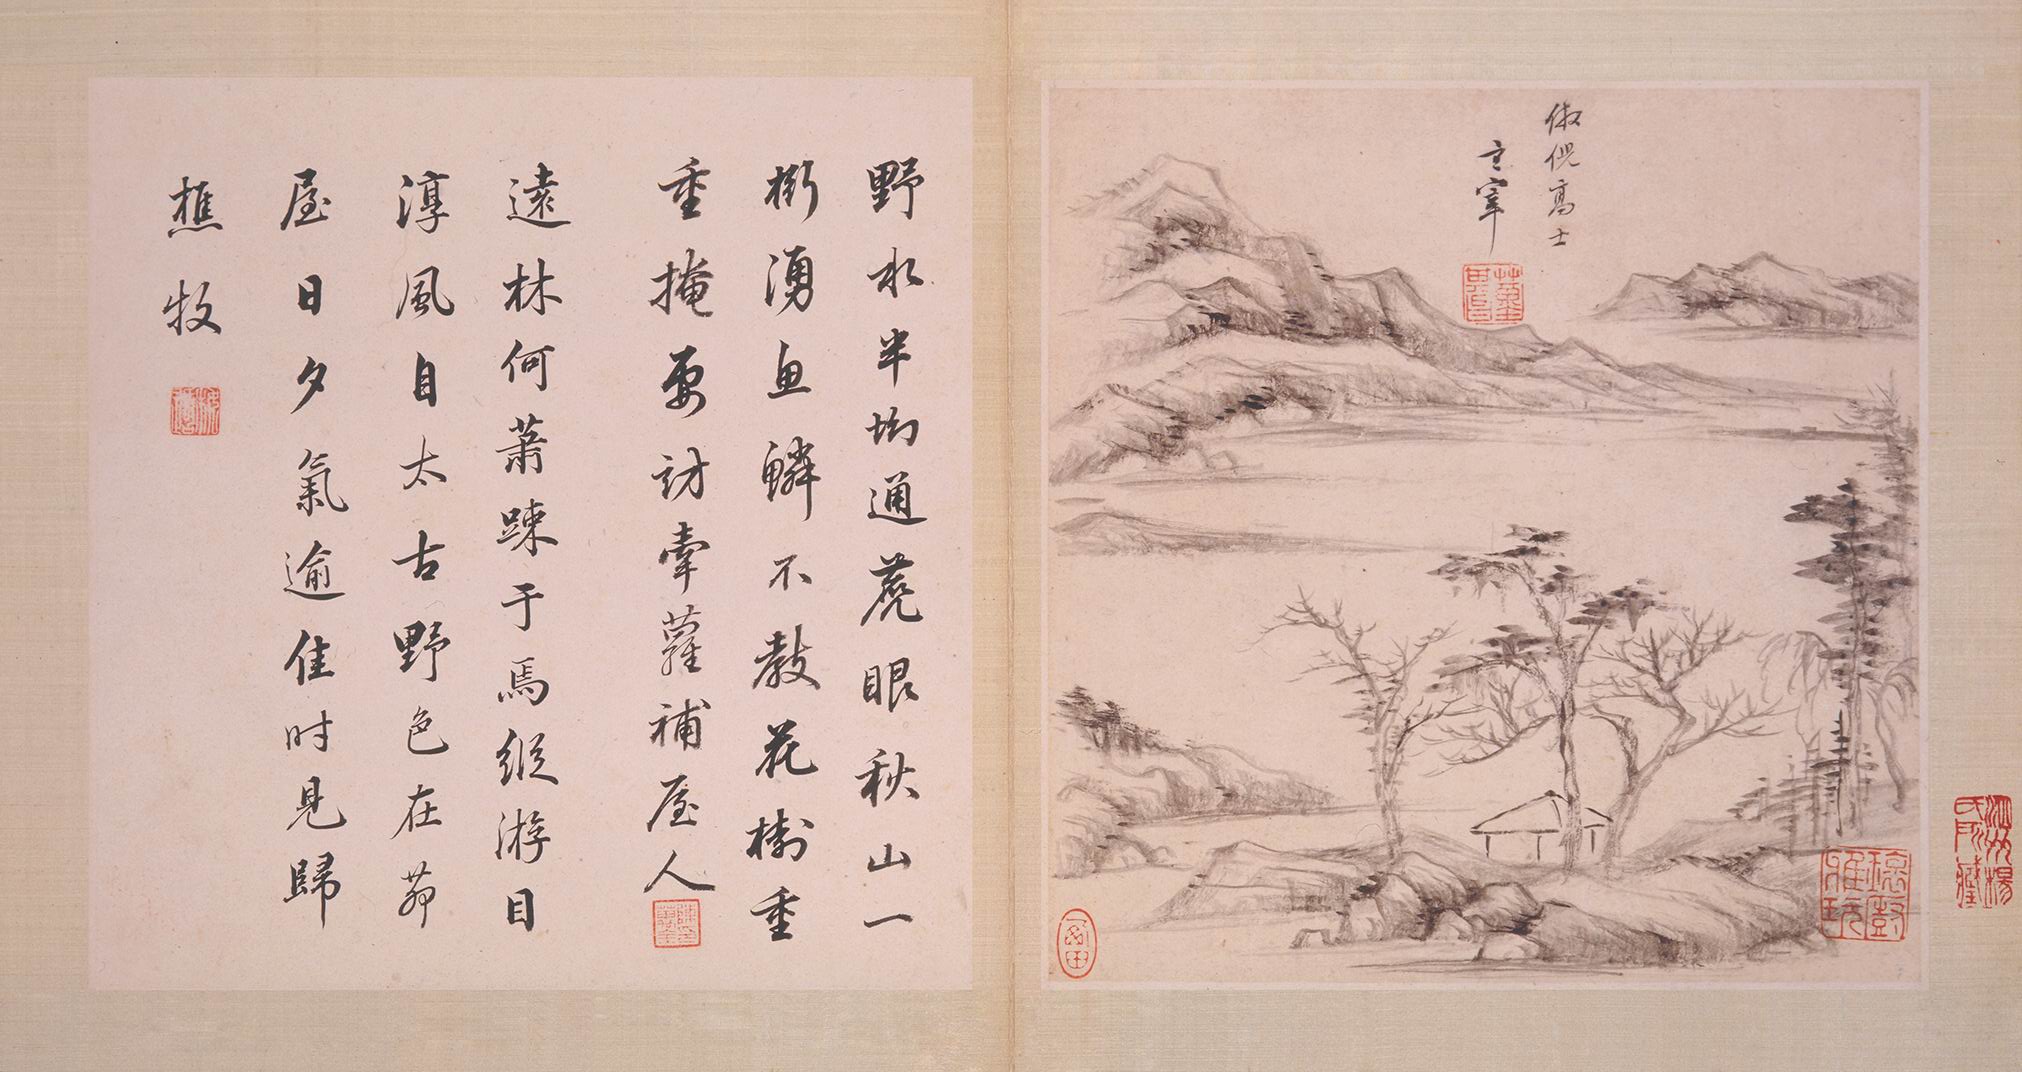 倣倪高士
玄宰
野水半坳通荒眼秋山一
衡湧魚鱗不教花樹重
重掩要訪牽蘿補屋人
遠林何蕭疎于焉縱游目
淳風自太古野色在茆
屋日夕氣逾佳时見歸
樵牧